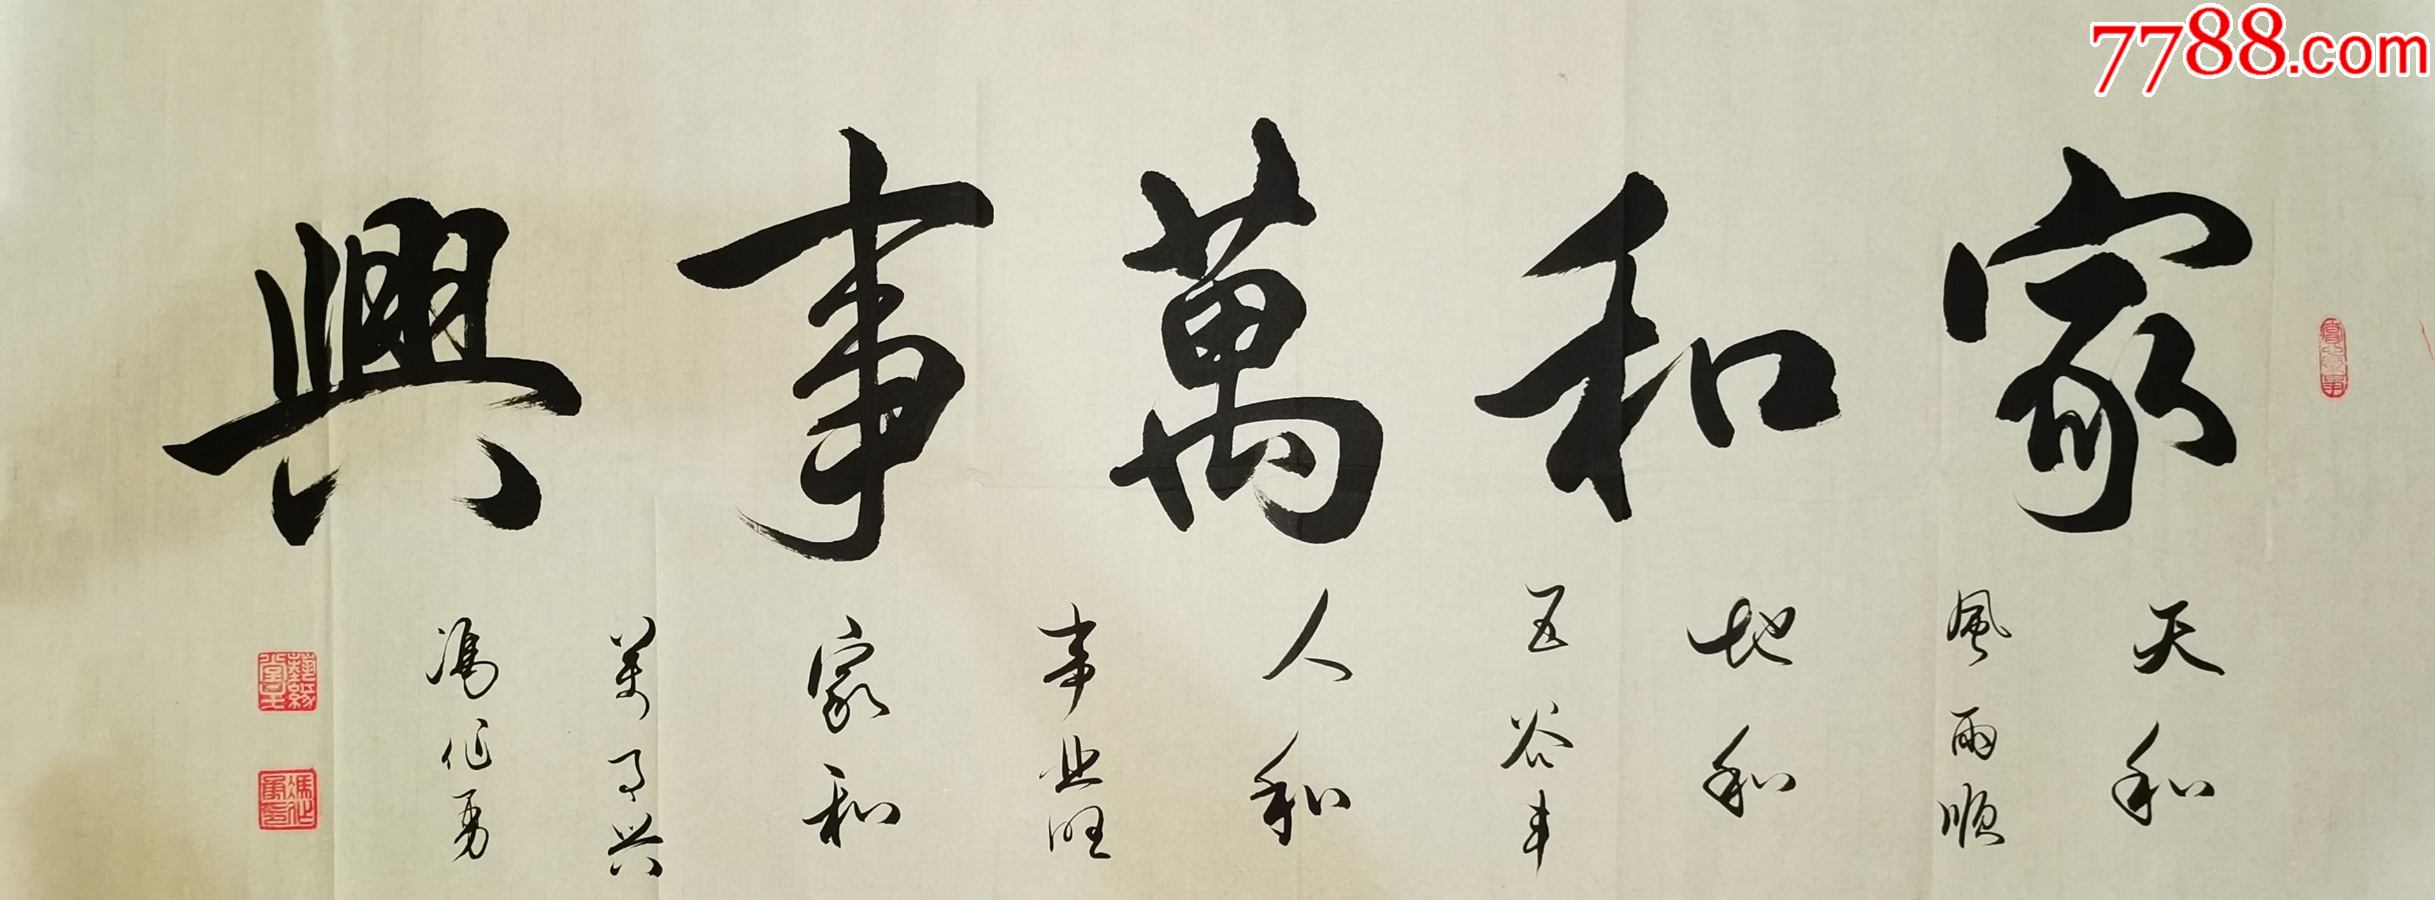 7788.com
家和萬事興
天和
風雨順
地和
五谷丰
人和
事业旺
家和
萬事兴
馮作勇